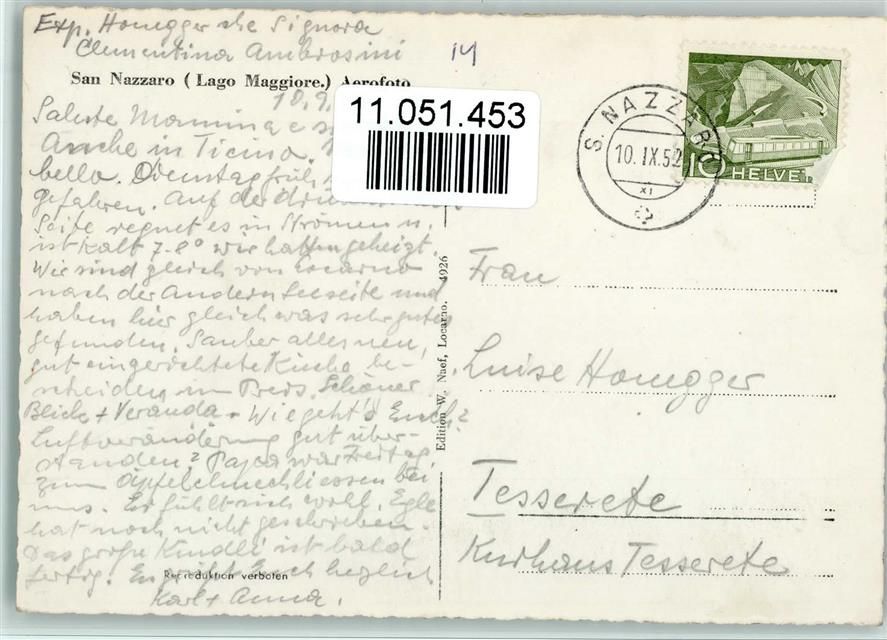 Exp. Honegger che Signora
Clementina Ambrosini
14
San Nazzaro (Lago Maggiore.) Aerofoto
10.9.
11.051.453
S. NAZZARO
10.IX.52
XI
10 HELVETIA
Salute Mammina e
Anche in Ticino.
bella. Dienstag früh
gefahren. Auf der
Seite regnet es in Strömen u.
ist kalt 7-8° wir hatten geheizt.
Wir sind gleich von Locarno
nach der andern Seeseite und
haben hier gleich was sehr gutes
gefunden. Sauber alles neu,
gut eingerichtete Küche be-
scheiden im Preis. Schöner
Blick + Veranda. Wie geht's Euch?
Luftveränderung gut über-
standen? Papa war Freitag
zum Äpfel
bei
uns. Er fühlt sich wohl. Egle
hat noch nicht geschrieben.
Das große Kindli ist bald
fertig. Es
Euch herzlich
Karl + Anna.
Reproduktion verboten
Edition W. Naef, Locarno. 4926
Frau
Luise Honegger
Tesserete
Kurhaus Tesserete